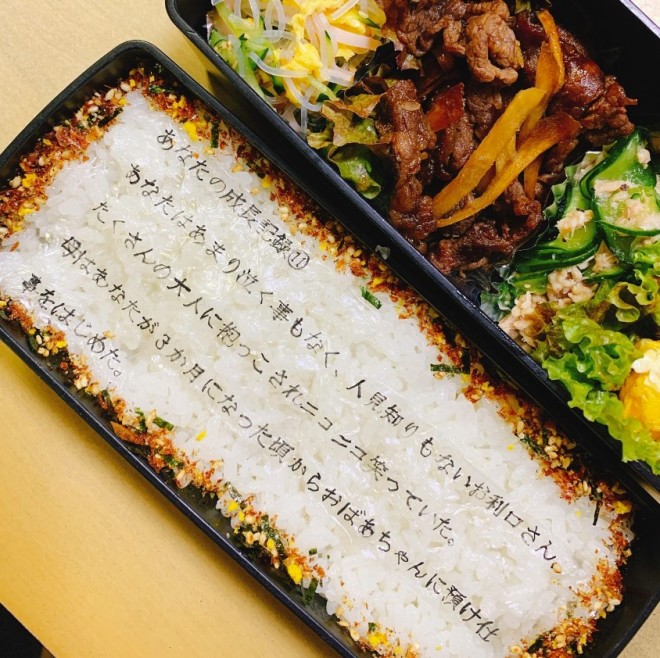 あなたの成長記録⑪
あなたはあまり泣く事もなく、人見知りもないお利口さん。
たくさんの大人に抱っこされニコニコ笑っていた。
母はあなたが3か月になった頃からおばあちゃんに預け仕
事をはじめた。